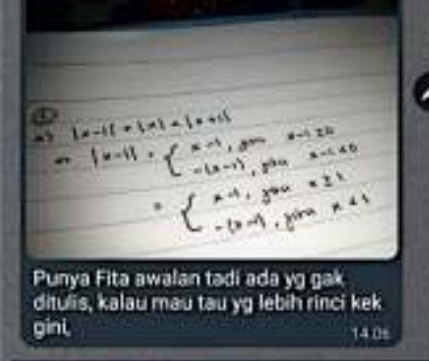 ①
⇒ |x-1| + |x| + |x+1|
⇒ |x-1| = { x-1, jika x-1 ≥ 0
-(x-1), jika x-1 < 0
= { x-1, jika x ≥ 1
-(x-1), jika x < 1
Punya Fita awalan tadi ada yg gak
ditulis, kalau mau tau yg lebih rinci kek
gini,
14.05